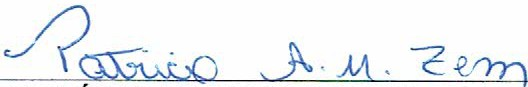 Patricia A. M. Zem